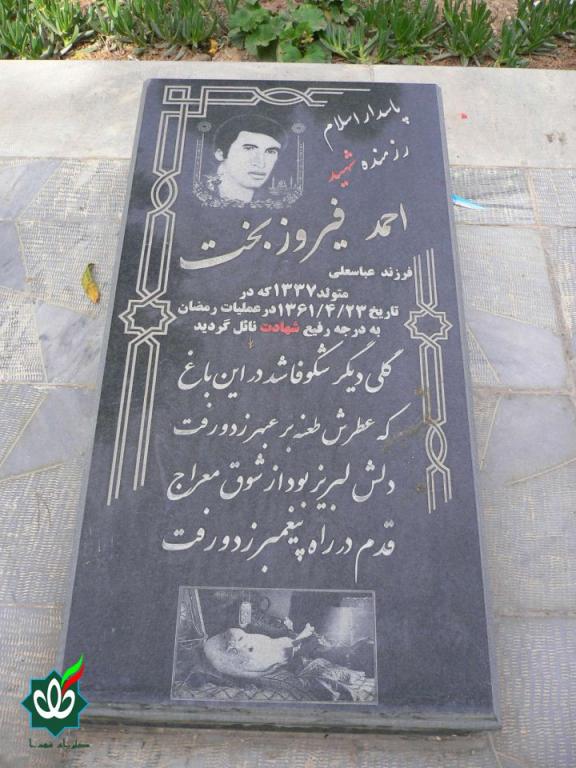 پاسدار اسلام
رزمنده شهید
احمد فیروز بخت
فرزند عباسعلی
متولد ۱۳۳۷ که در
تاریخ ۱۳۶۱/۴/۲۳ در عملیات رمضان
به درجه رفیع شهادت نائل گردید
گلی دیگر شکوفا شد در این باغ
که عطرش طعنه بر عبهر زد و رفت
دلش لبریز بود از شوق معراج
قدم در راه پیغمبر زد و رفت
گلزار شهدا